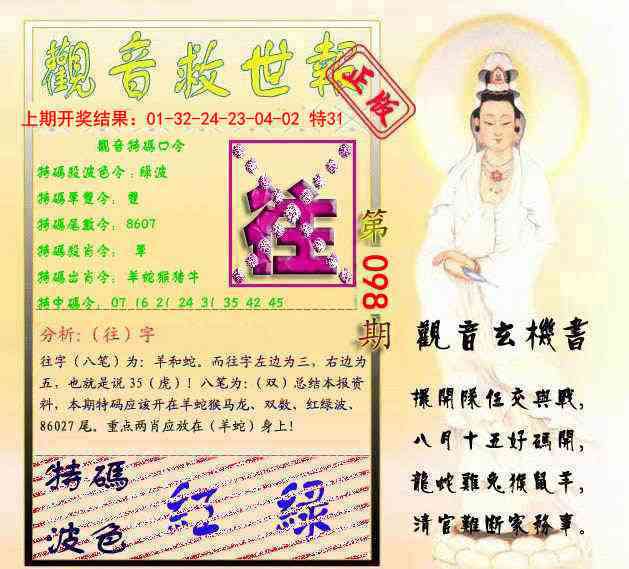 觀音救世報
正版
上期开奖结果：01-32-24-23-04-02 特31
觀音特碼口令
特碼段波色令：綠波
特碼單雙令： 雙
特碼尾數令： 8607
特碼段肖令： 單
特碼出肖令： 羊蛇猴猪牛
特中碼令： 07 16 21 24 31 35 42 45
往
第098期
分析:（往）字
往字（八笔）为：羊和蛇。而往字左边为三，右边为
五，也就是说 35（虎）！八笔为：（双）总结本报资
料，本期特码应该开在羊蛇猴马龙、双数、红绿波、
86027 尾。重点两肖应放在（羊蛇）身上！
特碼
波色
紅 綠
觀音玄機書
擺開陳伍交與戰，
八月十五好碼開，
龍蛇雞兔猴鼠羊，
清官難斷家務事。